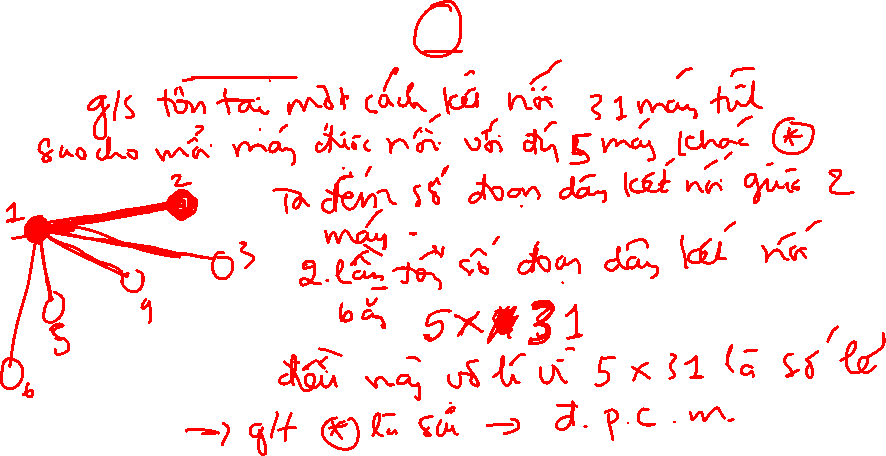 g/s tồn tại một cách kết nối 31 máy tính
sao cho mỗi máy được nối với đúng 5 máy khác *
Ta đếm số đoạn dây kết nối giữa 2
máy.
2 lần tổng số đoạn dây kết nối
bằng 5 x 31
điều này vô lí vì 5 x 31 là số lẻ
→ g/t * là sai → đ.p.c.m.
1 2 3 4 5 6